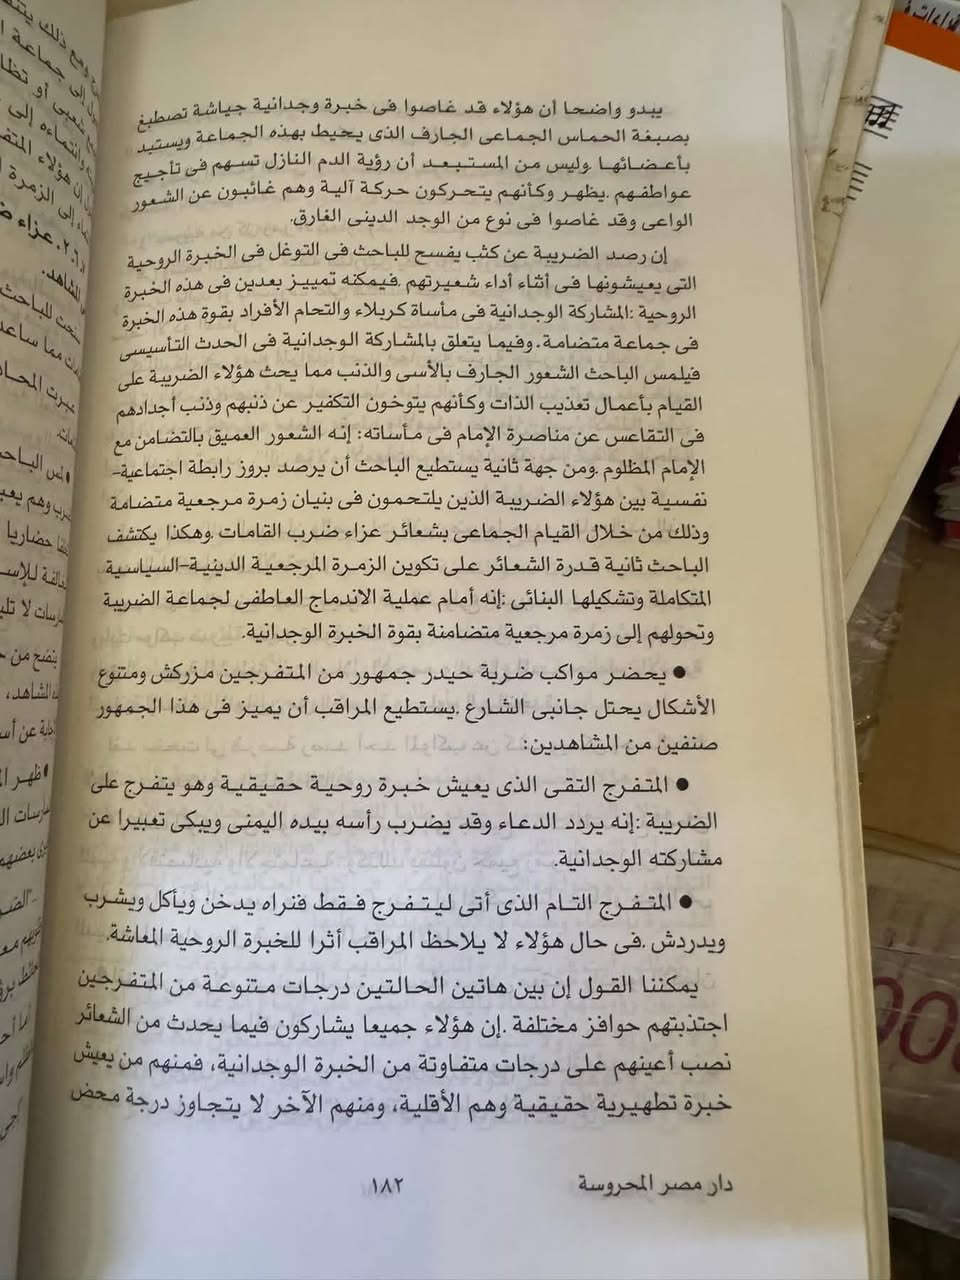 يبدو واضحا أن هؤلاء قد غاصوا فى خبرة وجدانية جياشة تصطبغ
بصبغة الحماس الجماعى الجارف الذى يحيط بهذه الجماعة ويستبد
بأعضائها .وليس من المستبعد أن رؤية الدم النازل تسهم فى تأجيج
عواطفهم .يظهر وكأنهم يتحركون حركة آلية وهم غائبون عن الشعور
الواعى وقد غاصوا فى نوع من الوجد الدينى الفارق.
إن رصد الضريبة عن كثب يفسح للباحث فى التوغل فى الخبرة الروحية
التى يعيشونها فى أثناء أداء شعيرتهم .فيمكنه تمييز بعدين فى هذه الخبرة
الروحية :المشاركة الوجدانية فى مأساة كربلاء والتحام الأفراد بقوة هذه الخبرة
فى جماعة متضامة. وفيما يتعلق بالمشاركة الوجدانية فى الحدث التأسيسى
فيلمس الباحث الشعور الجارف بالأسى والذنب مما يحث هؤلاء الضريبة على
القيام بأعمال تعذيب الذات وكأنهم يتوخون التكفير عن ذنبهم وذنب أجدادهم
فى التقاعس عن مناصرة الإمام فى مأساته: إنه الشعور العميق بالتضامن مع
الإمام المظلوم .ومن جهة ثانية يستطيع الباحث أن يرصد بروز رابطة اجتماعية-
نفسية بين هؤلاء الضريبة الذين يلتحمون فى بنيان زمرة مرجعية متضامة
وذلك من خلال القيام الجماعى بشعائر عزاء ضرب القامات .وهكذا يكتشف
الباحث ثانية قدرة الشعائر على تكوين الزمرة المرجعية الدينية-السياسية
المتكاملة وتشكيلها البنائى :إنه أمام عملية الاندماج العاطفى لجماعة الضريبة
وتحولهم إلى زمرة مرجعية متضامنة بقوة الخبرة الوجدانية.
● يحضر مواكب ضربة حيدر جمهور من المتفرجين مزركش ومتنوع
الأشكال يحتل جانبى الشارع .يستطيع المراقب أن يميز فى هذا الجمهور
صنفين من المشاهدين:
● المتفرج التقى الذى يعيش خبرة روحية حقيقية وهو يتفرج على
الضريبة :إنه يردد الدعاء وقد يضرب رأسه بيده اليمنى ويبكى تعبيرا عن
مشاركته الوجدانية.
● المتفرج التام الذى أتى ليتفرج فقط فنراه يدخن ويأكل ويشرب
ويدردش .فى حال هؤلاء لا يلاحظ المراقب أثرا للخبرة الروحية المعاشة.
يمكننا القول إن بين هاتين الحالتين درجات متنوعة من المتفرجين
اجتذبتهم حوافز مختلفة .إن هؤلاء جميعا يشاركون فيما يحدث من الشعائر
نصب أعينهم على درجات متفاوتة من الخبرة الوجدانية، فمنهم من يعيش
خبرة تطهيرية حقيقية وهم الأقلية، ومنهم الآخر لا يتجاوز درجة محض
دار مصر المحروسة
١٨٢